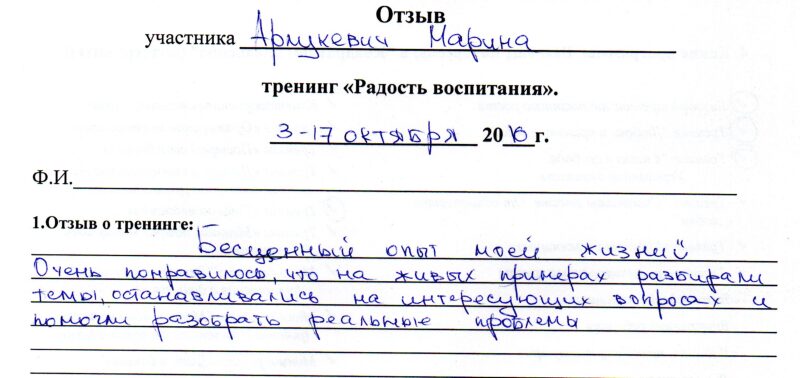 Отзыв
участника Арлукевич Марина
тренинг «Радость воспитания».
3-17 октября 2016 г.
Ф.И.
1.Отзыв о тренинге:
Бесценный опыт моей жизни!!
Очень понравилось, что на живых примерах разбирали
темы, останавливались на интересующих вопросах и
помогли разобрать реальные проблемы